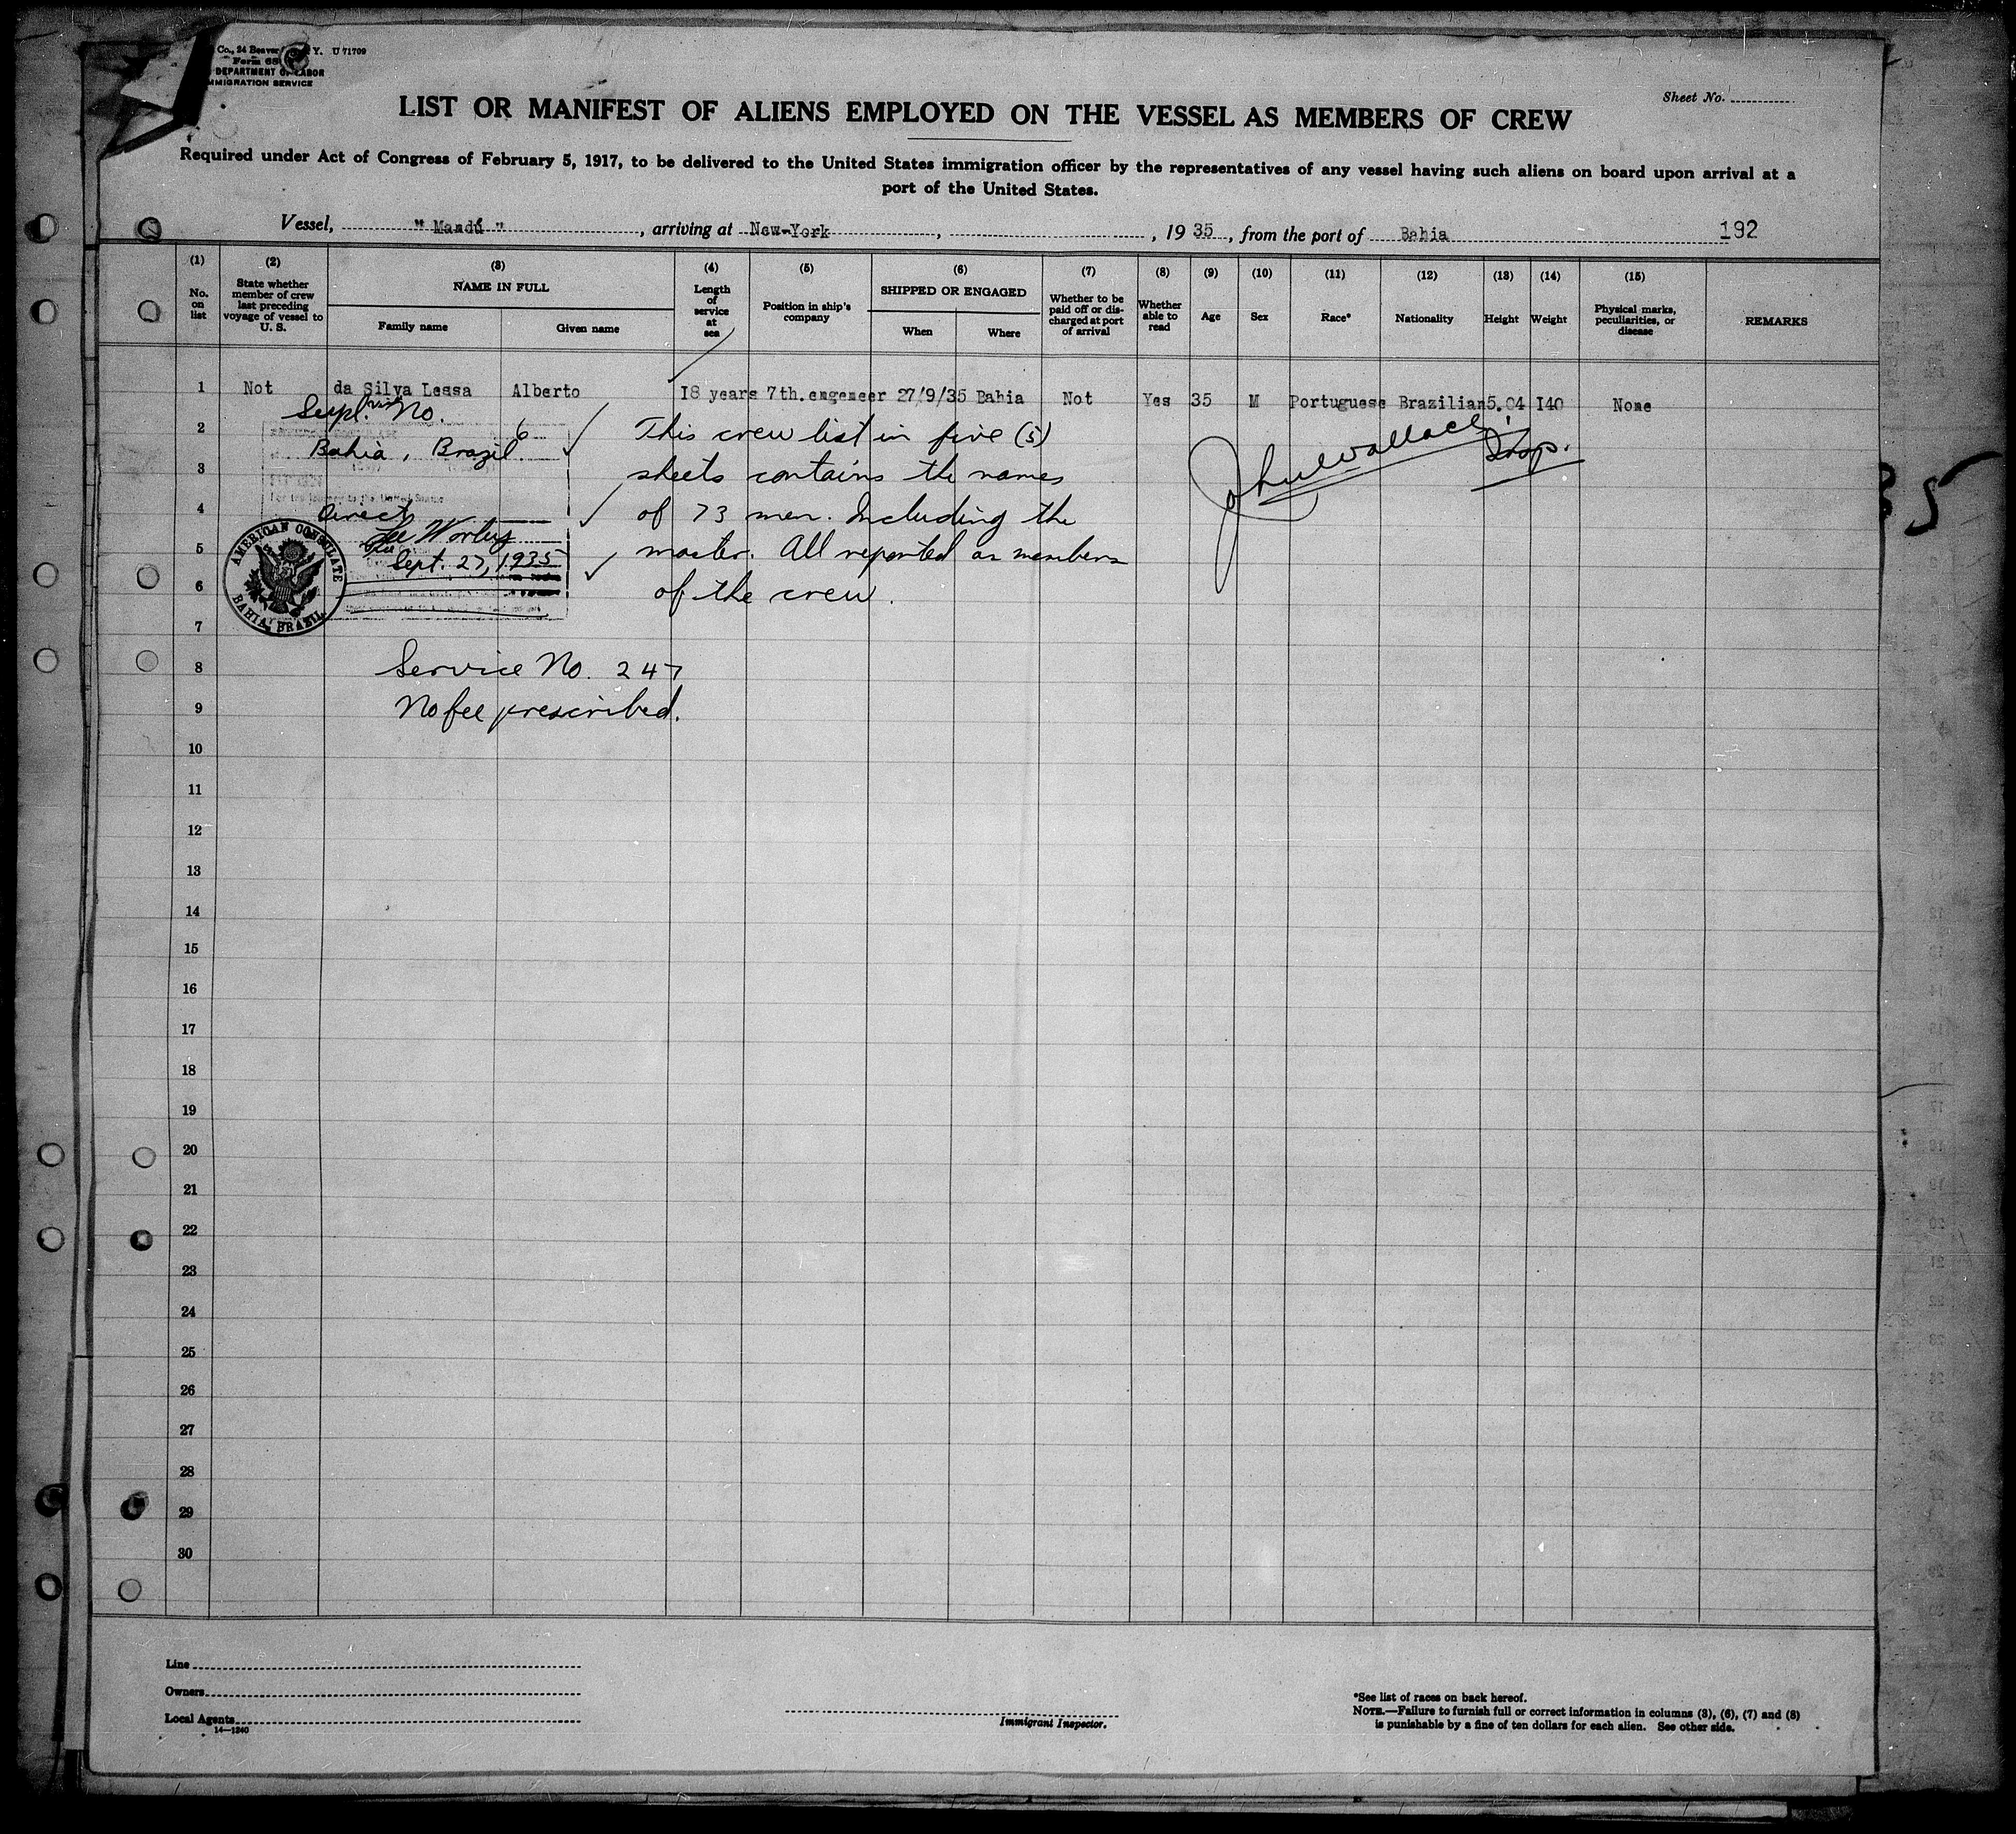 Co., 24 Beaver Y. U 71709
Form 68
DEPARTMENT OF LABOR
IMMIGRATION SERVICE
Sheet No.
LIST OR MANIFEST OF ALIENS EMPLOYED ON THE VESSEL AS MEMBERS OF CREW
Required under Act of Congress of February 5, 1917, to be delivered to the United States immigration officer by the representatives of any vessel having such aliens on board upon arrival at a
port of the United States.
Vessel, " Mandú ", arriving at New-York, , 19 35, from the port of Bahia 192
(1) No. on list
(2) State whether member of crew last preceding voyage of vessel to U. S.
(3) NAME IN FULL
Family name Given name
(4) Length of service at sea
(5) Position in ship's company
(6) SHIPPED OR ENGAGED
When Where
(7) Whether to be paid off or discharged at port of arrival
(8) Whether able to read
(9) Age
(10) Sex
(11) Race*
(12) Nationality
(13) Height
(14) Weight
(15) Physical marks, peculiarities, or disease
REMARKS
1 Not da Silva Lessa Alberto I8 years 7th.engeneer 27/9/35 Bahia Not Yes 35 M Portuguese Brazilian 5.04 I40 None
Supl. No. 6
2 Bahia, Brazil.
This crew list in five (5)
3 sheets contains the names
4 Direct
of 73 men. Including the
5 Sept. 27, 1935
master. All reported as members
6 of the crew.
John Wallace
Insp.
AMERICAN CONSULATE
BAHIA, BRAZIL
7
8 Service No. 247
9 No fee prescribed.
10
11
12
13
14
15
16
17
18
19
20
21
22
23
24
25
26
27
28
29
30
Line
Owners
Local Agents
14—1240
Immigrant Inspector.
*See list of races on back hereof.
NOTE.—Failure to furnish full or correct information in columns (3), (6), (7) and (8)
is punishable by a fine of ten dollars for each alien. See other side.